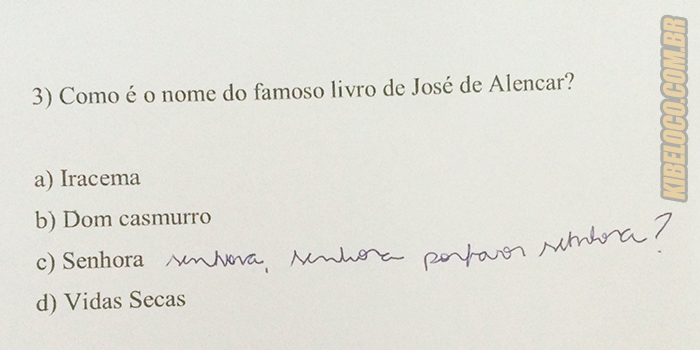 3) Como é o nome do famoso livro de José de Alencar?
a) Iracema
b) Dom casmurro
c) Senhora senhora, senhora porfavor senhora?
d) Vidas Secas
KIBELOCO.COM.BR